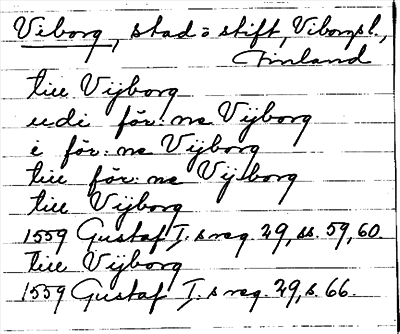 Viborg, stad o stift, Viborgsl.,
Finland
till Vijborg
udi för:ne Vijborg
i för:ne Vijborg
till för:ne Vijborg
till Vijborg
1559 Gustaf I:s reg. 29, ss. 59, 60.
till Vijborg
1559 Gustaf I:s reg. 29, s. 66.